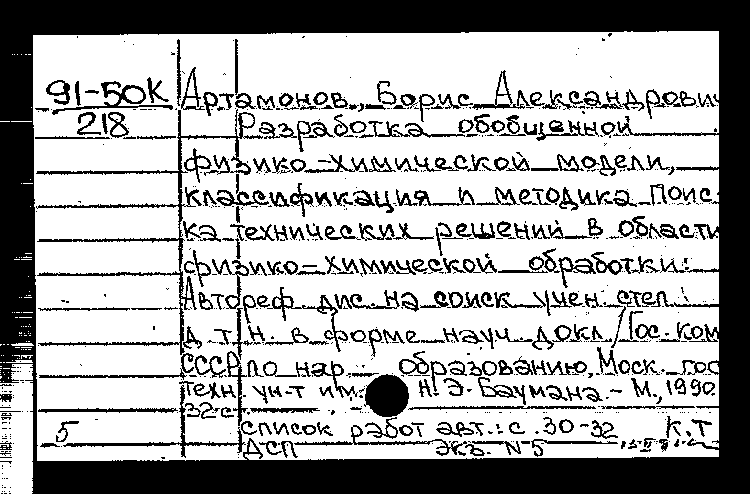 91-50К Артамонов, Борис Александрович
218 Разработка обобщенной
физико-химической модели,
классификация и методика поис-
ка технических решений в области
физико-химической обработки:
Автореф. дис. на соиск. учен. степ.:
д. т. н. в форме науч. докл./Гос. ком
СССР по нар. образованию, Моск. гос
техн. ун-т им. Н. Э. Баумана.- М., 1990.
32 с
5 список работ авт.: с. 30-32 К.Т
ДСП Экз. N 5